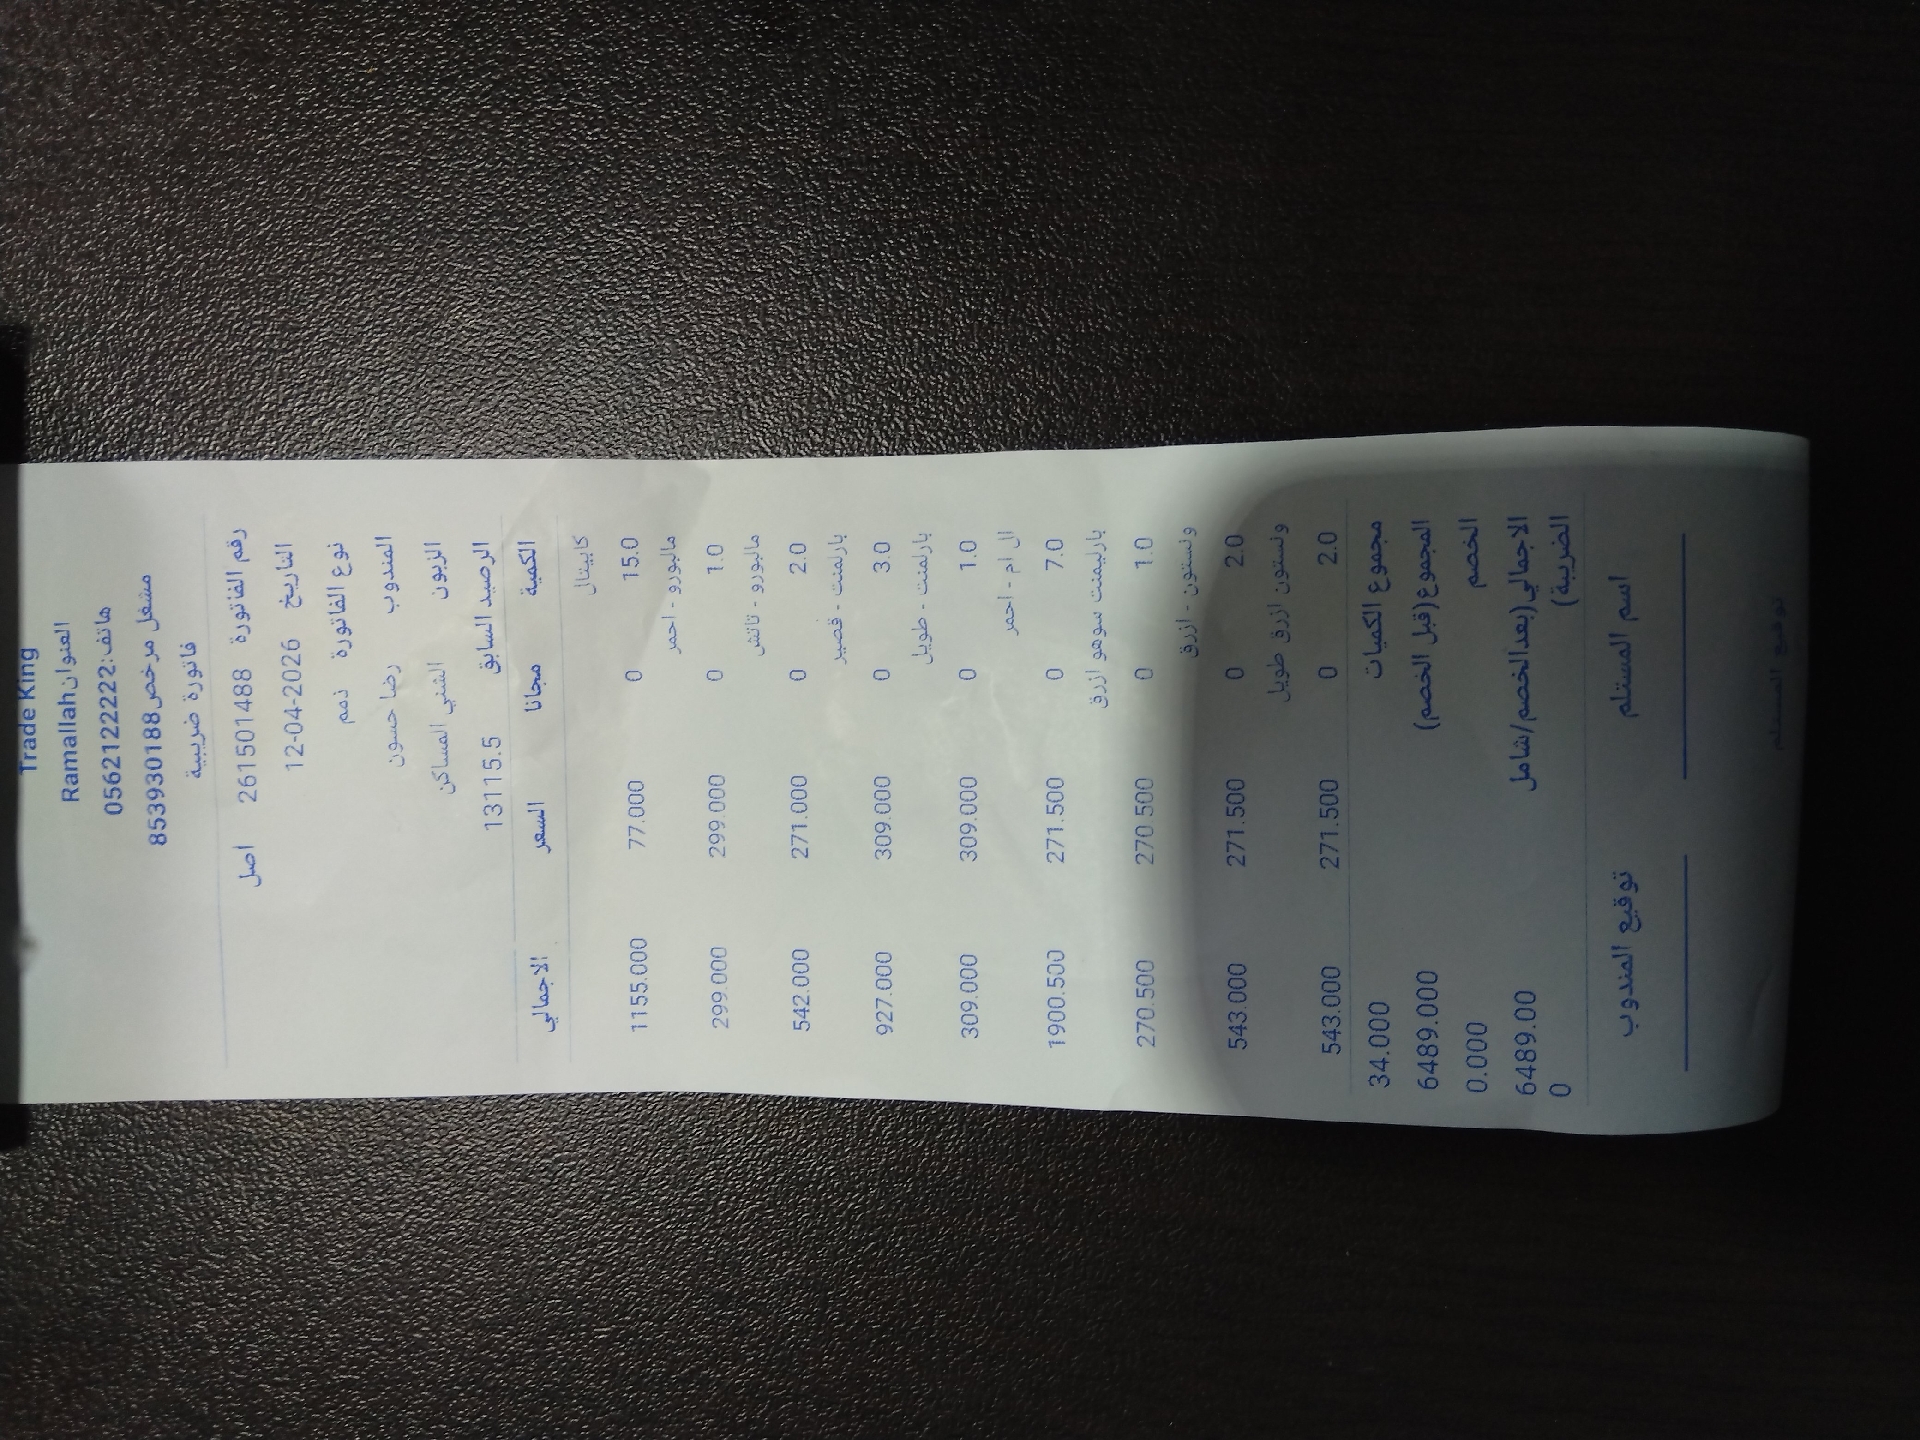 Trade King
العنوان Ramallah
هاتف:0562122222
مشغل مرخص853930188
فاتورة ضريبية
رقم الفاتورة 261501488 اصل
التاريخ 12-04-2026
نوع الفاتورة ذمم
المندوب رضا حسون
الزبون الشني المساكن
الرصيد السابق 13115.5
الكمية مجانا السعر الاجمالي
كابيتال
15.0 0 77.000 1155.000
مالبورو - احمر
1.0 0 299.000 299.000
مالبورو - تاتش
2.0 0 271.000 542.000
بارلمنت - قصير
3.0 0 309.000 927.000
بارلمنت - طويل
1.0 0 309.000 309.000
ال ام - احمر
7.0 0 271.500 1900.500
بارليمنت سوهو ازرق
1.0 0 270.500 270.500
ونستون - ازرق
2.0 0 271.500 543.000
ونستون ازرق طويل
2.0 0 271.500 543.000
مجموع الكميات 34.000
المجموع(قبل الخصم) 6489.000
الخصم 0.000
الاجمالي(بعدالخصم/شامل 6489.00
الضريبة) 0
اسم المستلم توقيع المندوب
توقيع المستلم